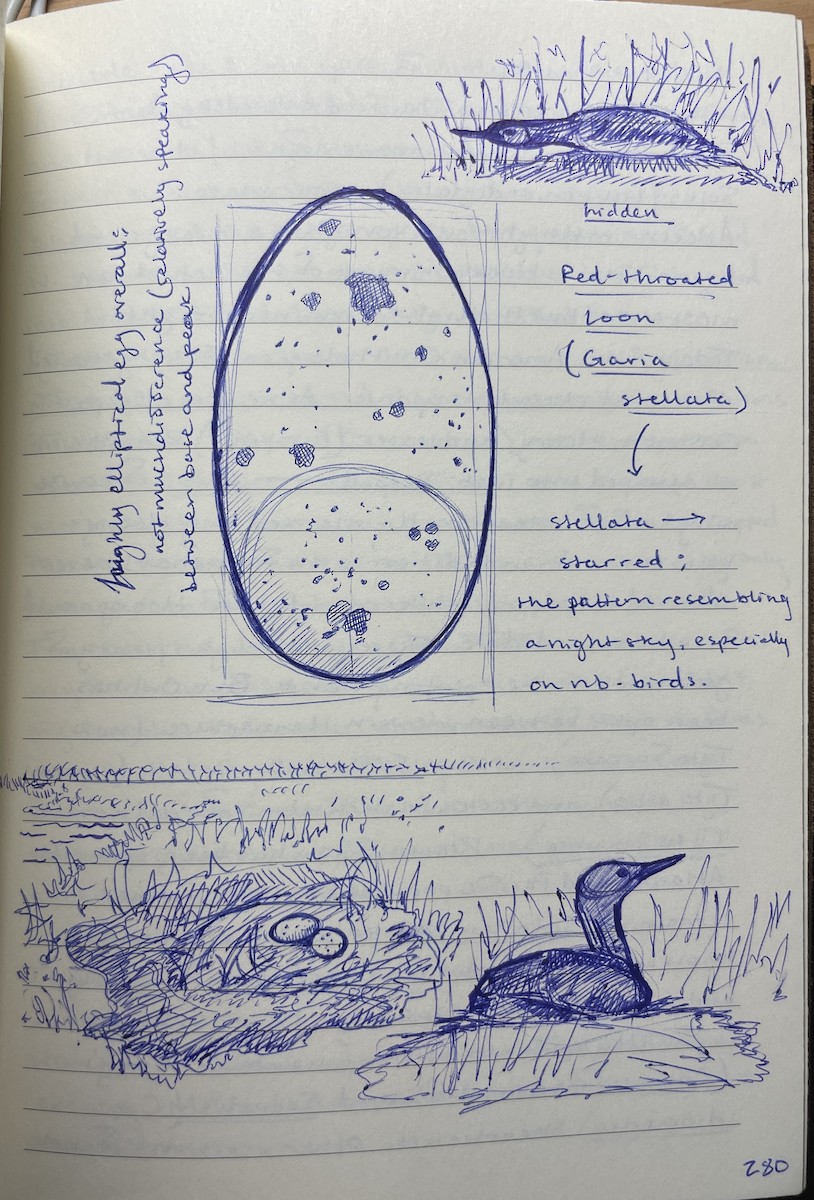 highly elliptical egg overall;
not much difference (relatively speaking)
between base and peak
hidden
Red-throated
Loon
(Gavia
stellata)
stellata →
starred;
the pattern resembling
a night sky, especially
on nb-birds.
280